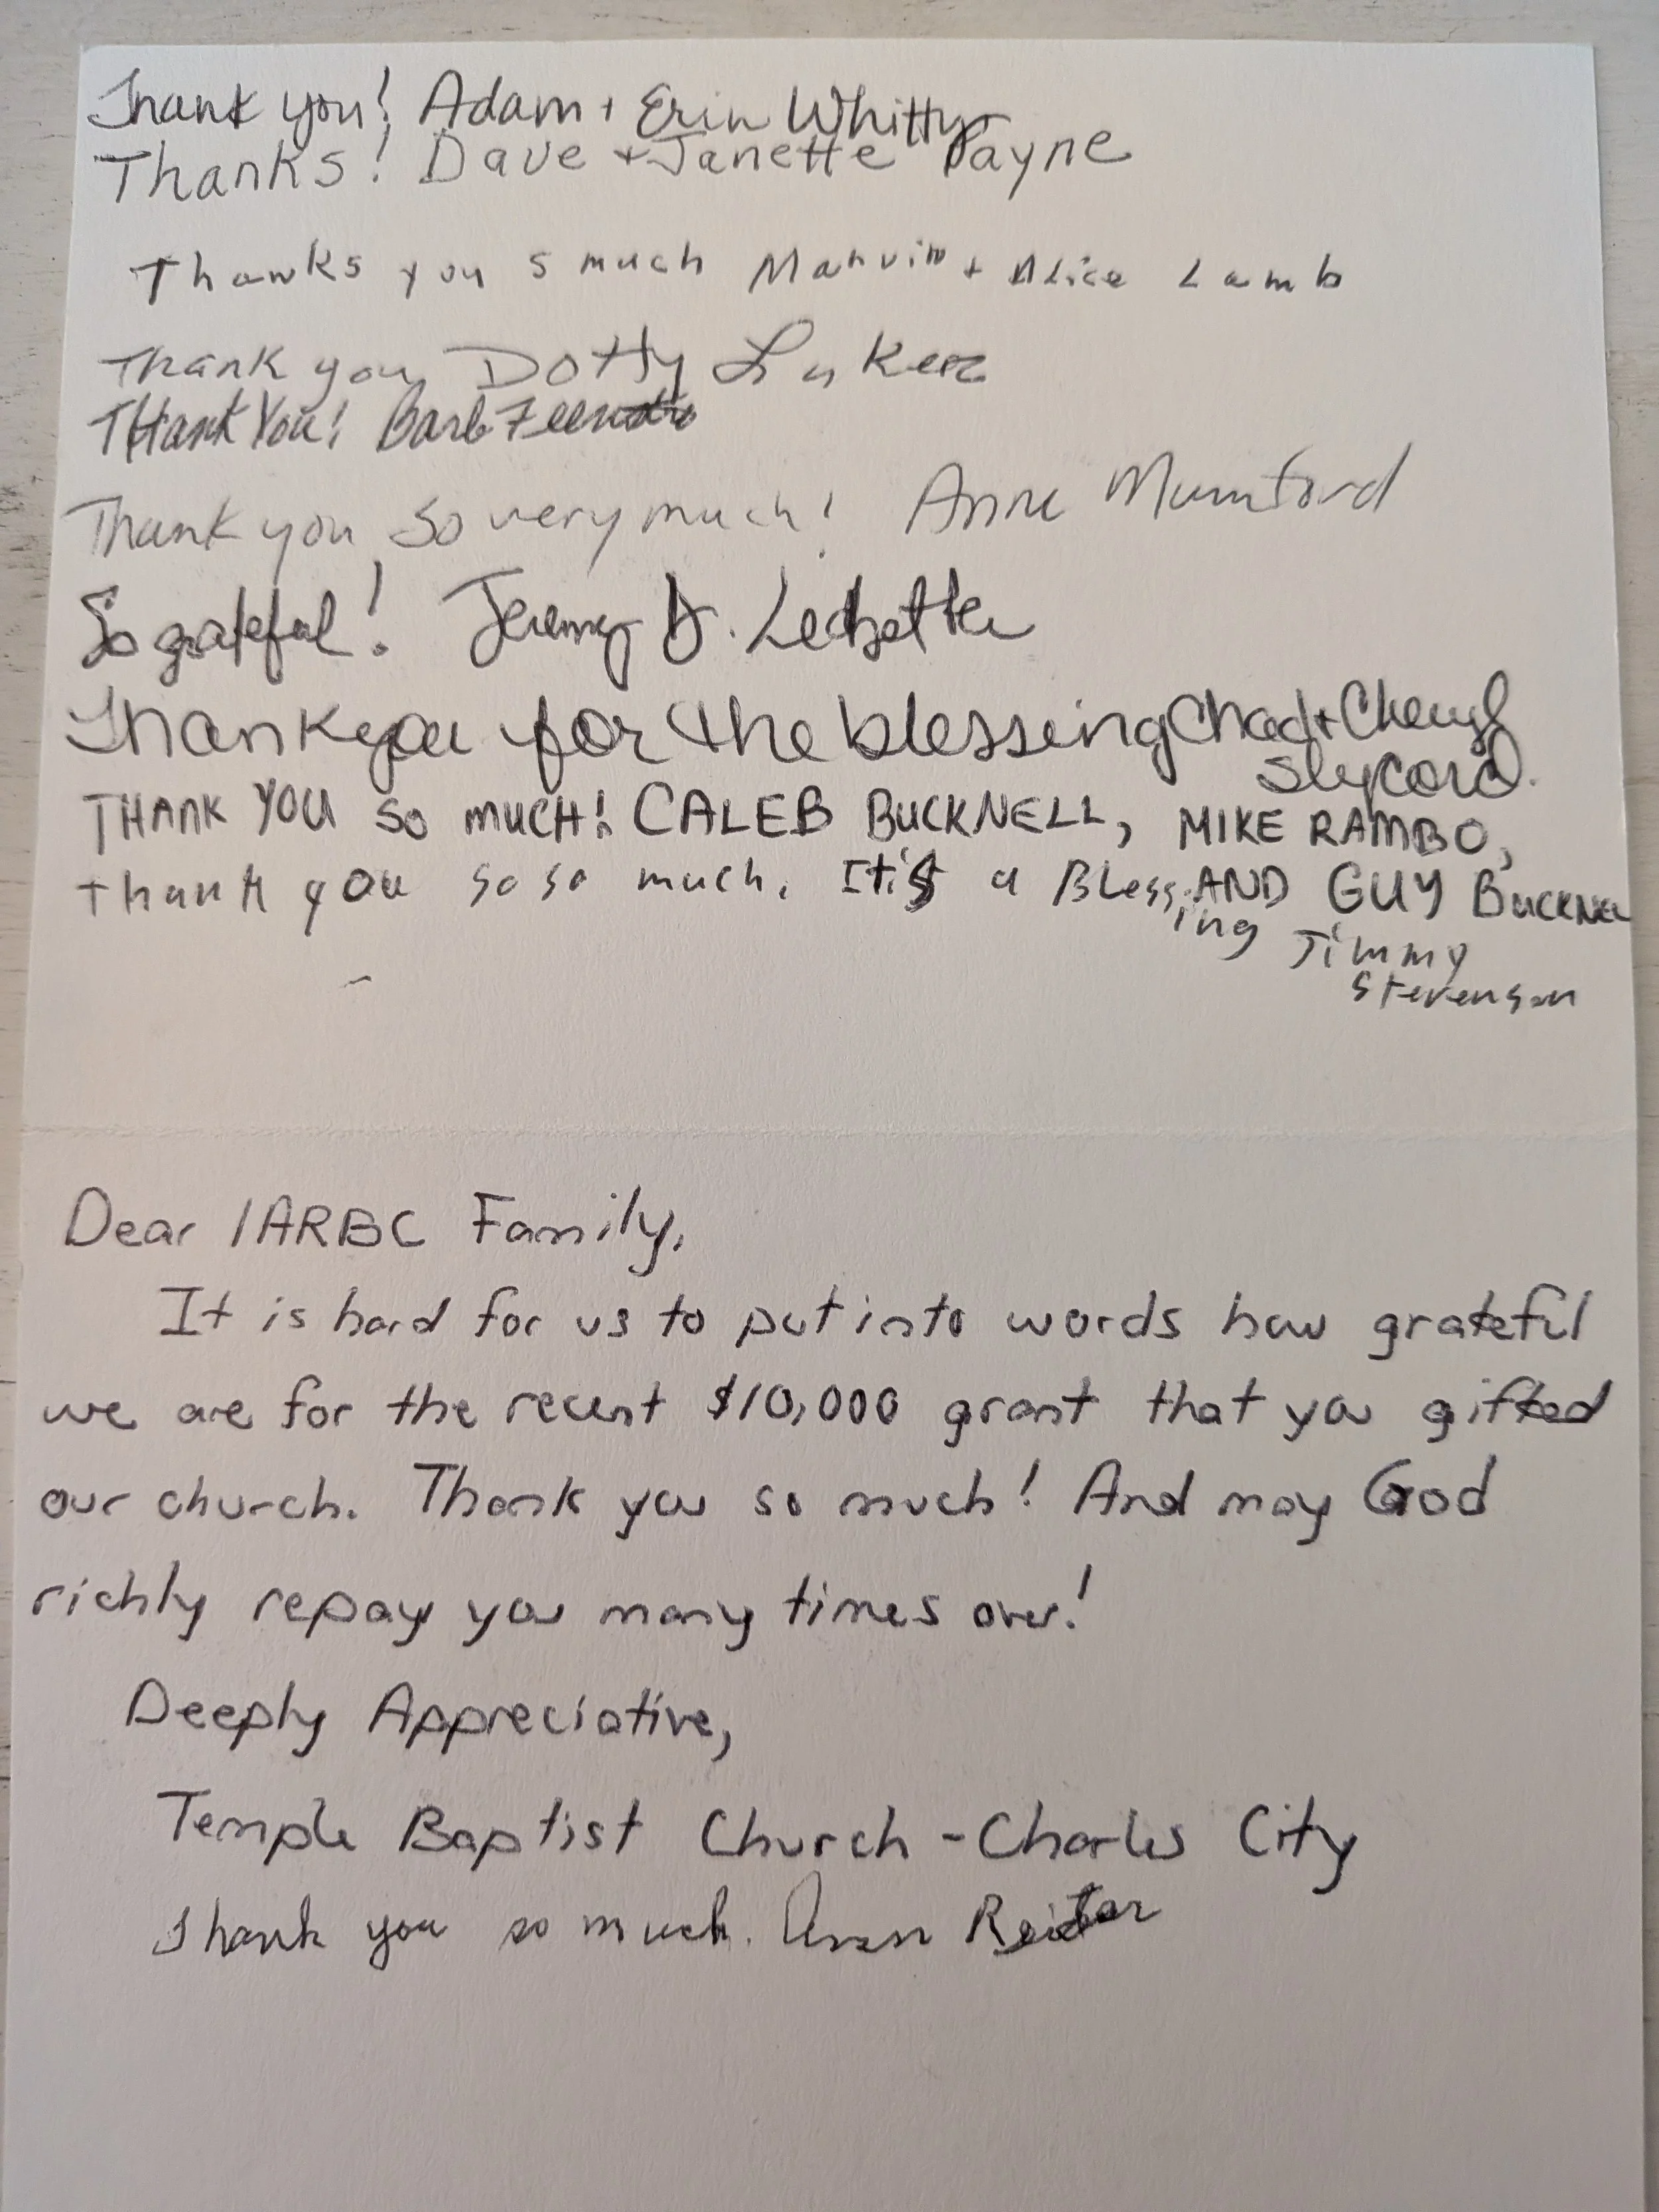 Thank you! Adam + Erin Whitty
Thanks! Dave + Janette Payne
Thanks you s much Marvin + Alice Lamb
Thank you Dotty
Thank You! Barb
Thank you so very much! Anne Mumford
So grateful! Jeremy D. Ledbetter
Thank you for the blessing Chad + Cheryl
Slycord.
THANK YOU SO MUCH! CALEB BUCKNELL, MIKE RAMBO,
AND GUY BUCKNELL
thank you so so much. It's a Bless
ing Jimmy
Stevenson
Dear IARBC Family,
It is hard for us to put into words how grateful
we are for the recent $10,000 grant that you gifted
our church. Thank you so much! And may God
richly repay you many times over!
Deeply Appreciative,
Temple Baptist Church - Charles City
Thank you so much. Ann Reiter